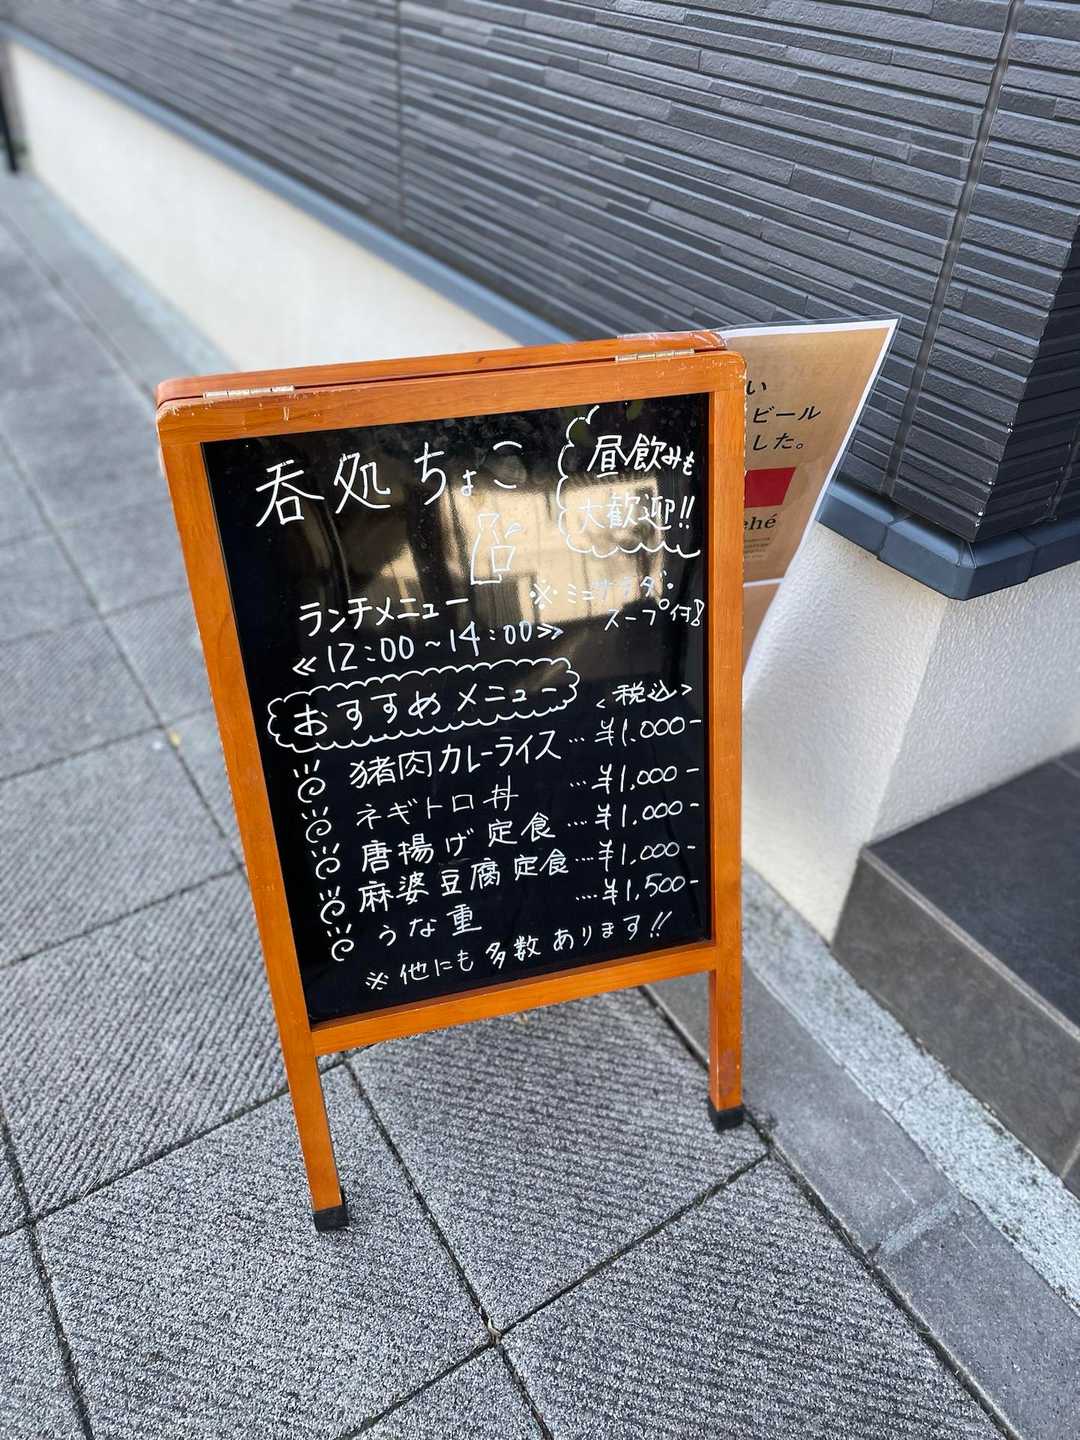 呑処 ちょこ
昼飲みも
大歓迎!!
ランチメニュー
≪12:00~14:00≫
※ミニサラダ・
スープ付き
おすすめメニュー
<税込>
猪肉カレーライス…¥1.000-
ネギトロ丼 …¥1.000-
唐揚げ定食…¥1.000-
麻婆豆腐定食…¥1.000-
うな重 ….¥1,500-
※他にも多数あります!!
い
ビール
した。